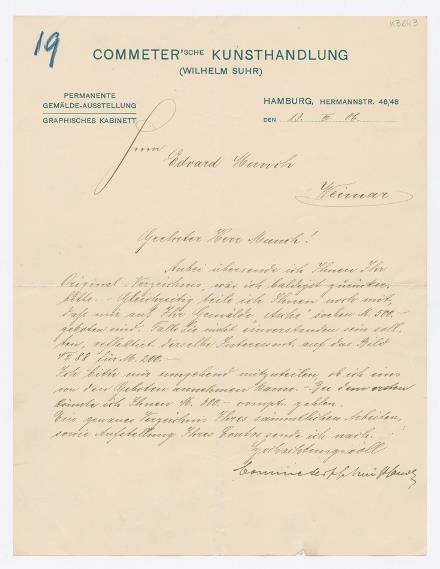 K3643
19
COMMETER'SCHE KUNSTHANDLUNG
(WILHELM SUHR)
PERMANENTE
GEMÄLDE-AUSSTELLUNG
GRAPHISCHES KABINETT
HAMBURG, HERMANNSTR. 46/48
DEN 13. 06.
Herrn
Edvard Munch
Weimar
Geehrter Herr Munch!
Anbei übersende ich Ihnen Ihr
Original-Verzeichnis, was ich baldigst zurücker-
bitte. - Gleichzeitig teile ich Ihnen noch mit,
daß mir auf Ihr Gemälde "Asche" soeben M. 500.-
geboten sind. Falls Sie nicht einverstanden sein soll-
ten, reflektiert derselbe Interessent auf das Bild
88 für M. 200.-
Ich bitte mir umgehend mitzuteilen, ob ich eins
von den Geboten annehmen kann. - Zu dem ersten
könnte ich Ihnen M. zahlen.
Ein genaues Verzeichnis Ihrer sämmtlichen Arbeiten,
sowie Aufstellung Ihres Contos sende ich nach.
Hochachtungsvoll